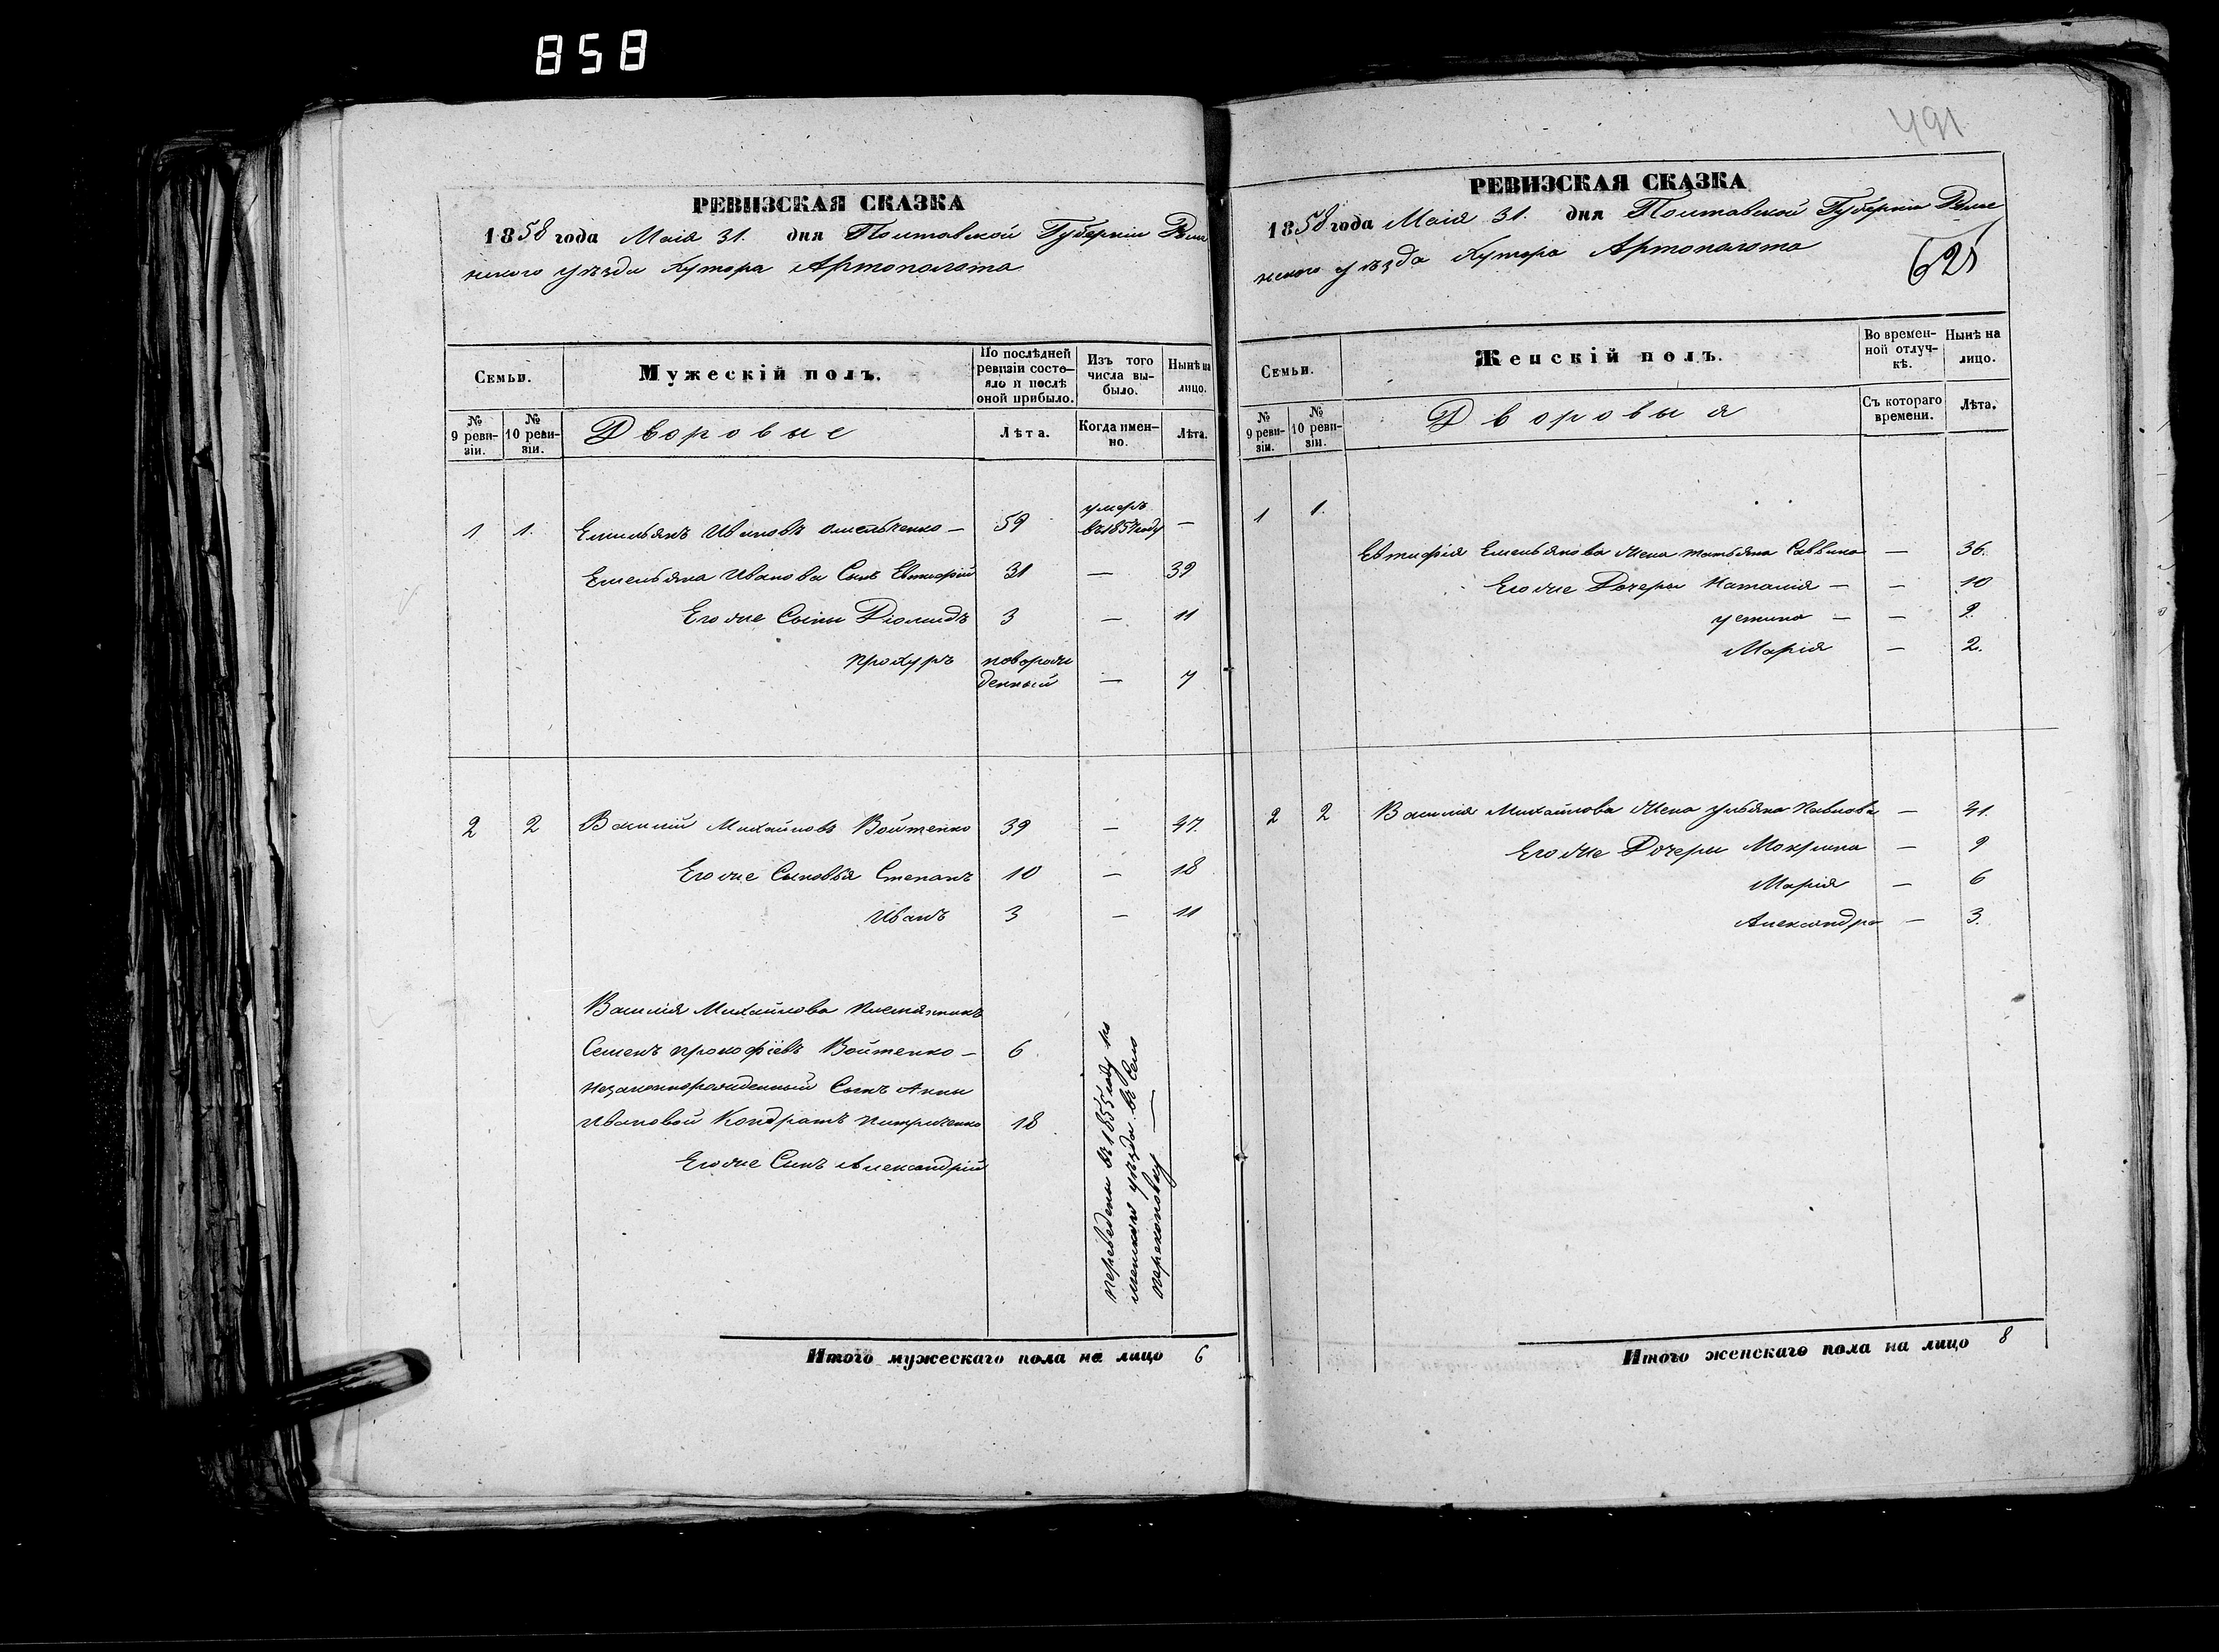 858
РЕВИЗСКАЯ СКАЗКА
1858 года Маія 31. дня Полтавской Губерніи Роме
нского уѣзда Хутора Артополота
Семьи.
Мужескій полъ.
По послѣдней ревизіи состояло и послѣ оной прибыло.
Изъ того числа выбыло.
Нынѣ на лицо.
№ 9 ревизіи.
№ 10 ревизіи.
Дворовые
Лѣта.
Когда именно.
Лѣта.
1 1. Емельянъ Ивановъ Омельченко — 59 умеръ въ 1857 году —
Емельяна Иванова Сынъ Евтифій 31 — 39
Его же Сыны Діомидъ 3 — 11
Прохуръ новорож
денный — 7
2 2 Василий Михайловъ Войтенко 39 — 47.
Его же Сыновья Степанъ 10 — 18
Иванъ 3 — 11
Василія Михайлова племянникъ
Семенъ Прокофіевъ Войтенко — 6
Незаконнорожденный Сынъ Анны
Ивановой Кондратъ 18
Его же Сынъ Александрій
переведены въ 1855 году
уѣзда въ Село
Итого мужескаго пола на лицо 6
491
РЕВИЗСКАЯ СКАЗКА
1858 года Маія 31. дня Полтавской Губерніи Роме
нского уѣзда Хутора Артополота
621
Семьи.
Женскій полъ.
Во временной отлучкѣ.
Нынѣ на лицо.
№ 9 ревизіи.
№ 10 ревизіи.
Дворовыя
Съ котораго времени.
Лѣта.
1 1.
Евтифія Емельянова Жена Татьяна Саввина — 36.
Его же Дочери Наталія — — 10
Устина — — 9.
Марія — 2.
2 2 Василія Михайлова Жена Ульяна Павлова — 41.
Его же Дочери Мокрина — 9
Марія — 6
Александра — 3.
Итого женскаго пола на лицо 8